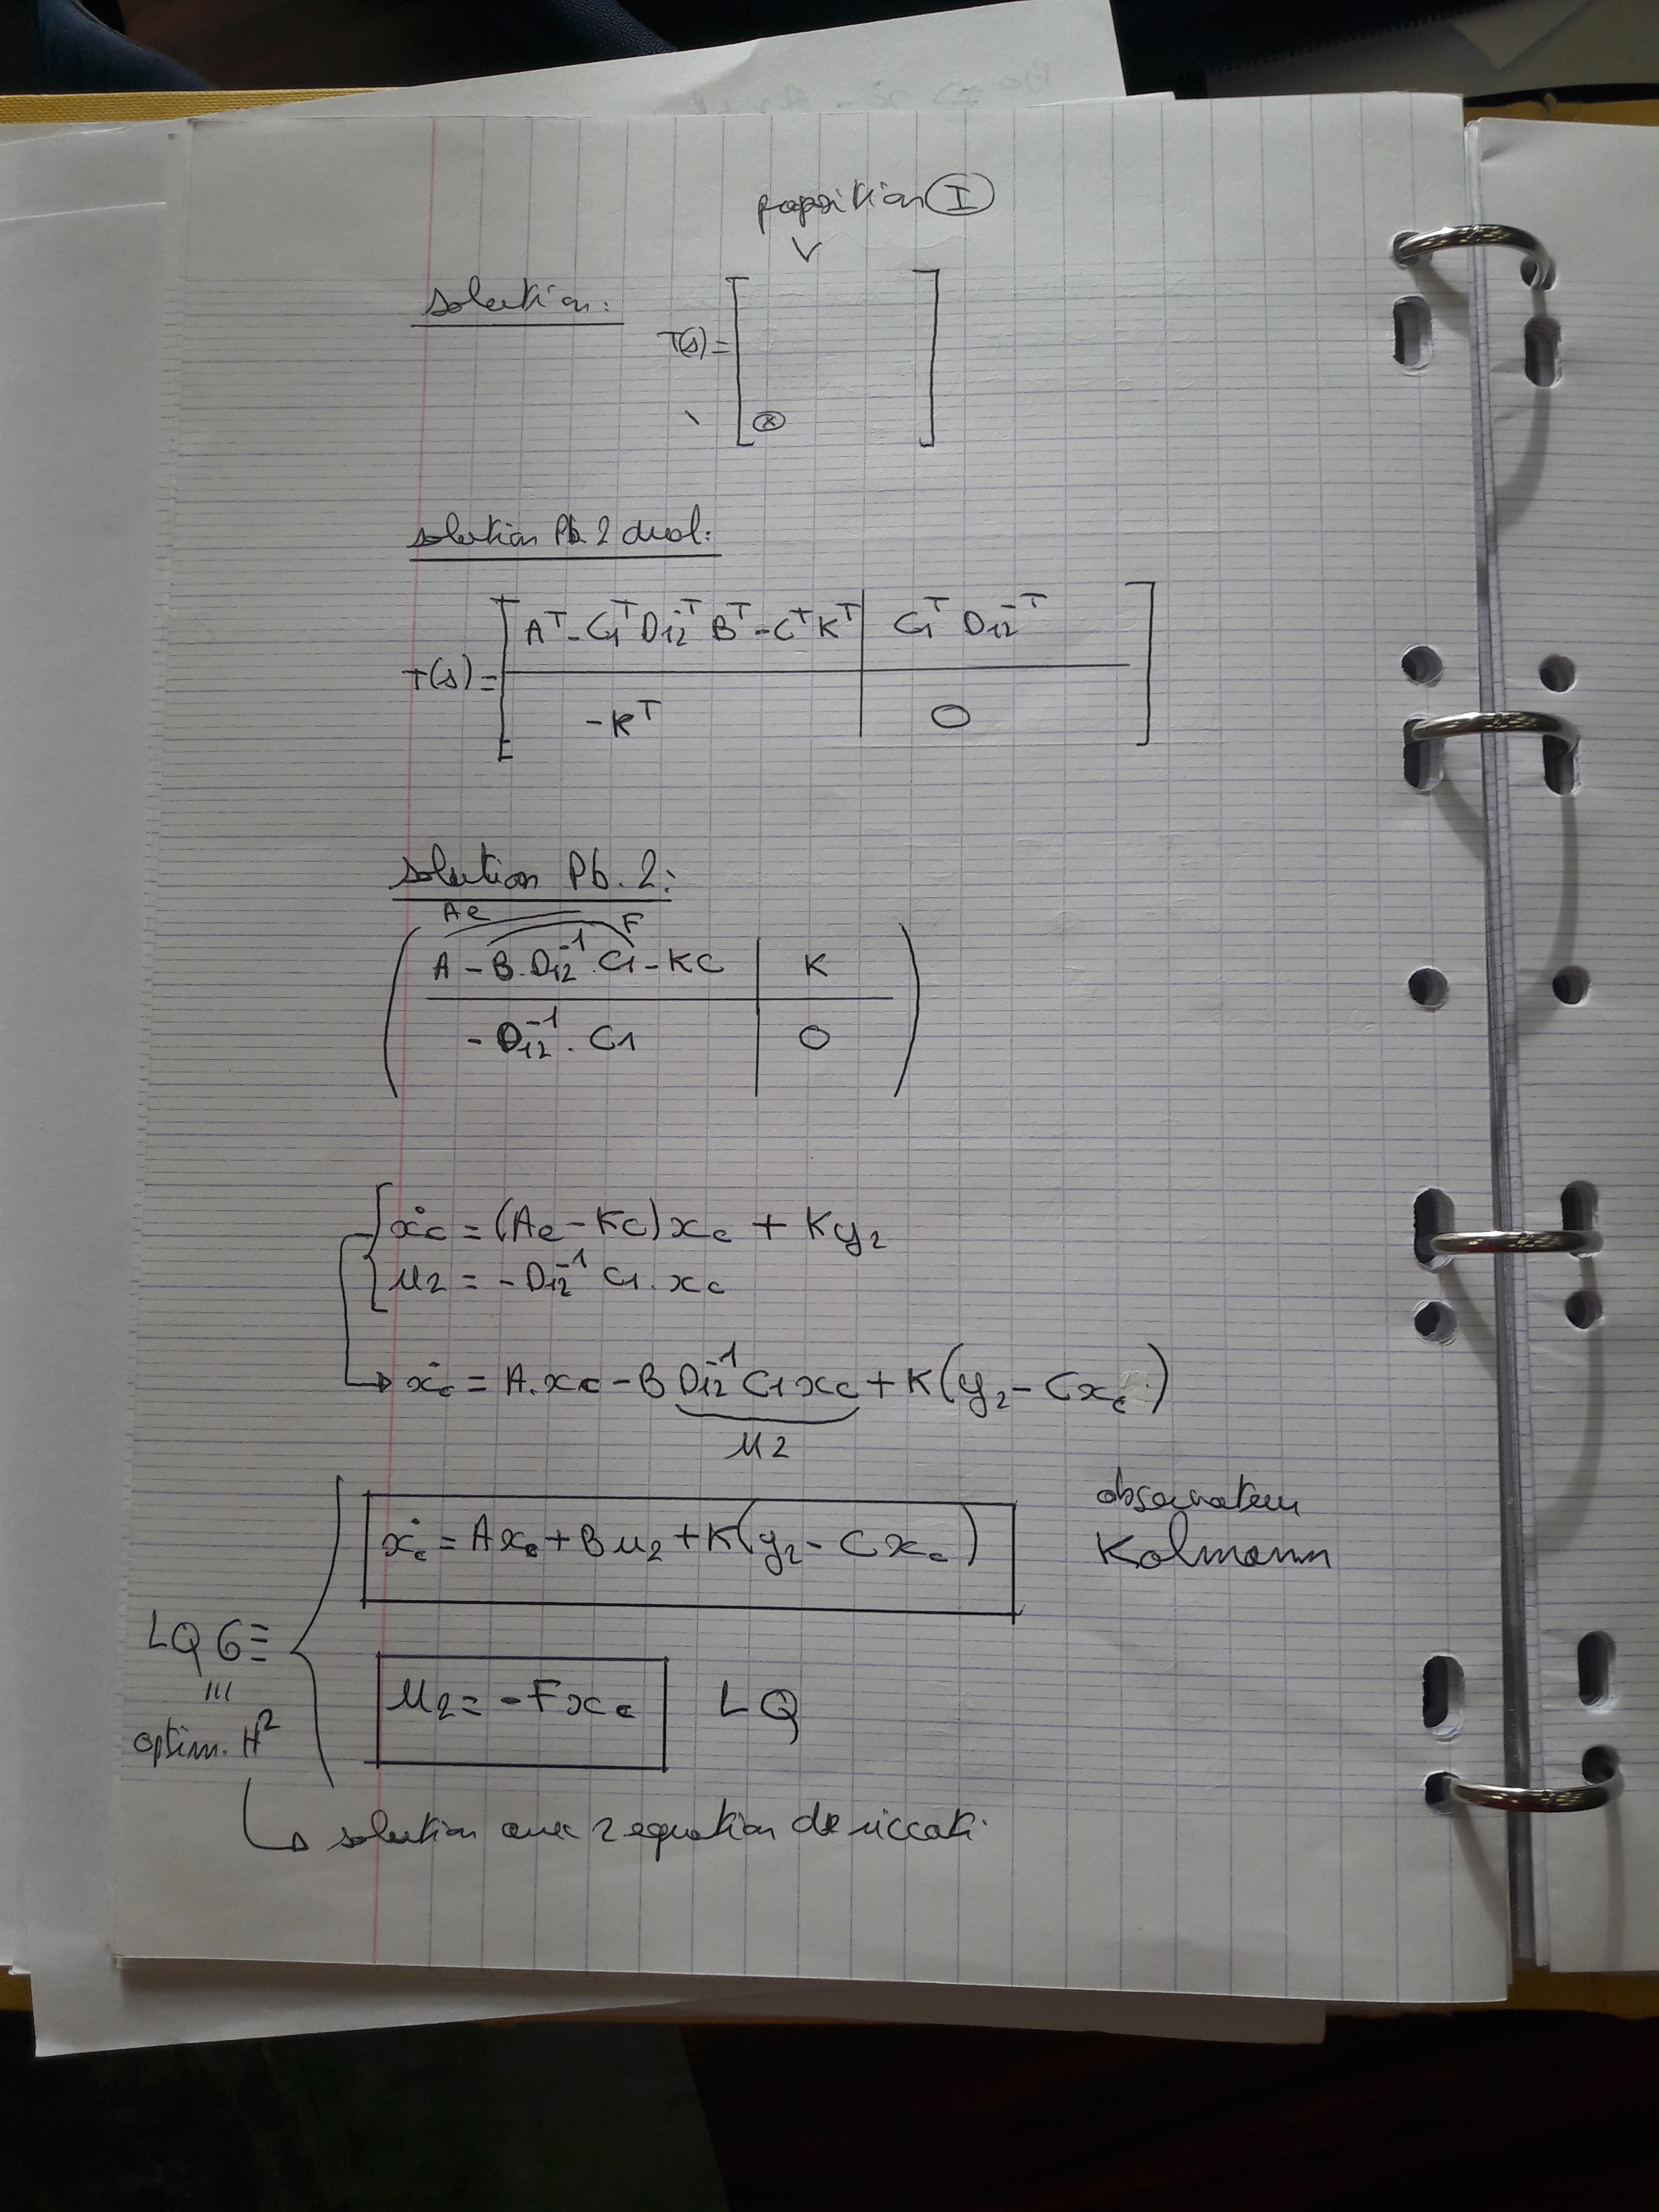 proposition I
solution:
T(s) = [ ⊗ ]
solution Pb. 2 dual:
T(s) = [ A^T - C1^T D12^-T B^T - C^T K^T | C1^T D12^-T ]
-K^T | 0
solution Pb. 2:
Ae F
( A - B.D12^-1.C1 - KC | K )
-D12^-1.C1 | 0
ẋc = (Ae - KC)xc + Ky2
u2 = -D12^-1 C1.xc
↳ ẋc = A.xc - B D12^-1 C1 xc + K(y2 - Cxc)
u2
ẋc = Axc + Bu2 + K(y2 - Cxc)
observateur
Kalmann
LQG ≡
u2 = -Fxc LQ
≡
optim. H²
↳ solution avec 2 equation de riccati.